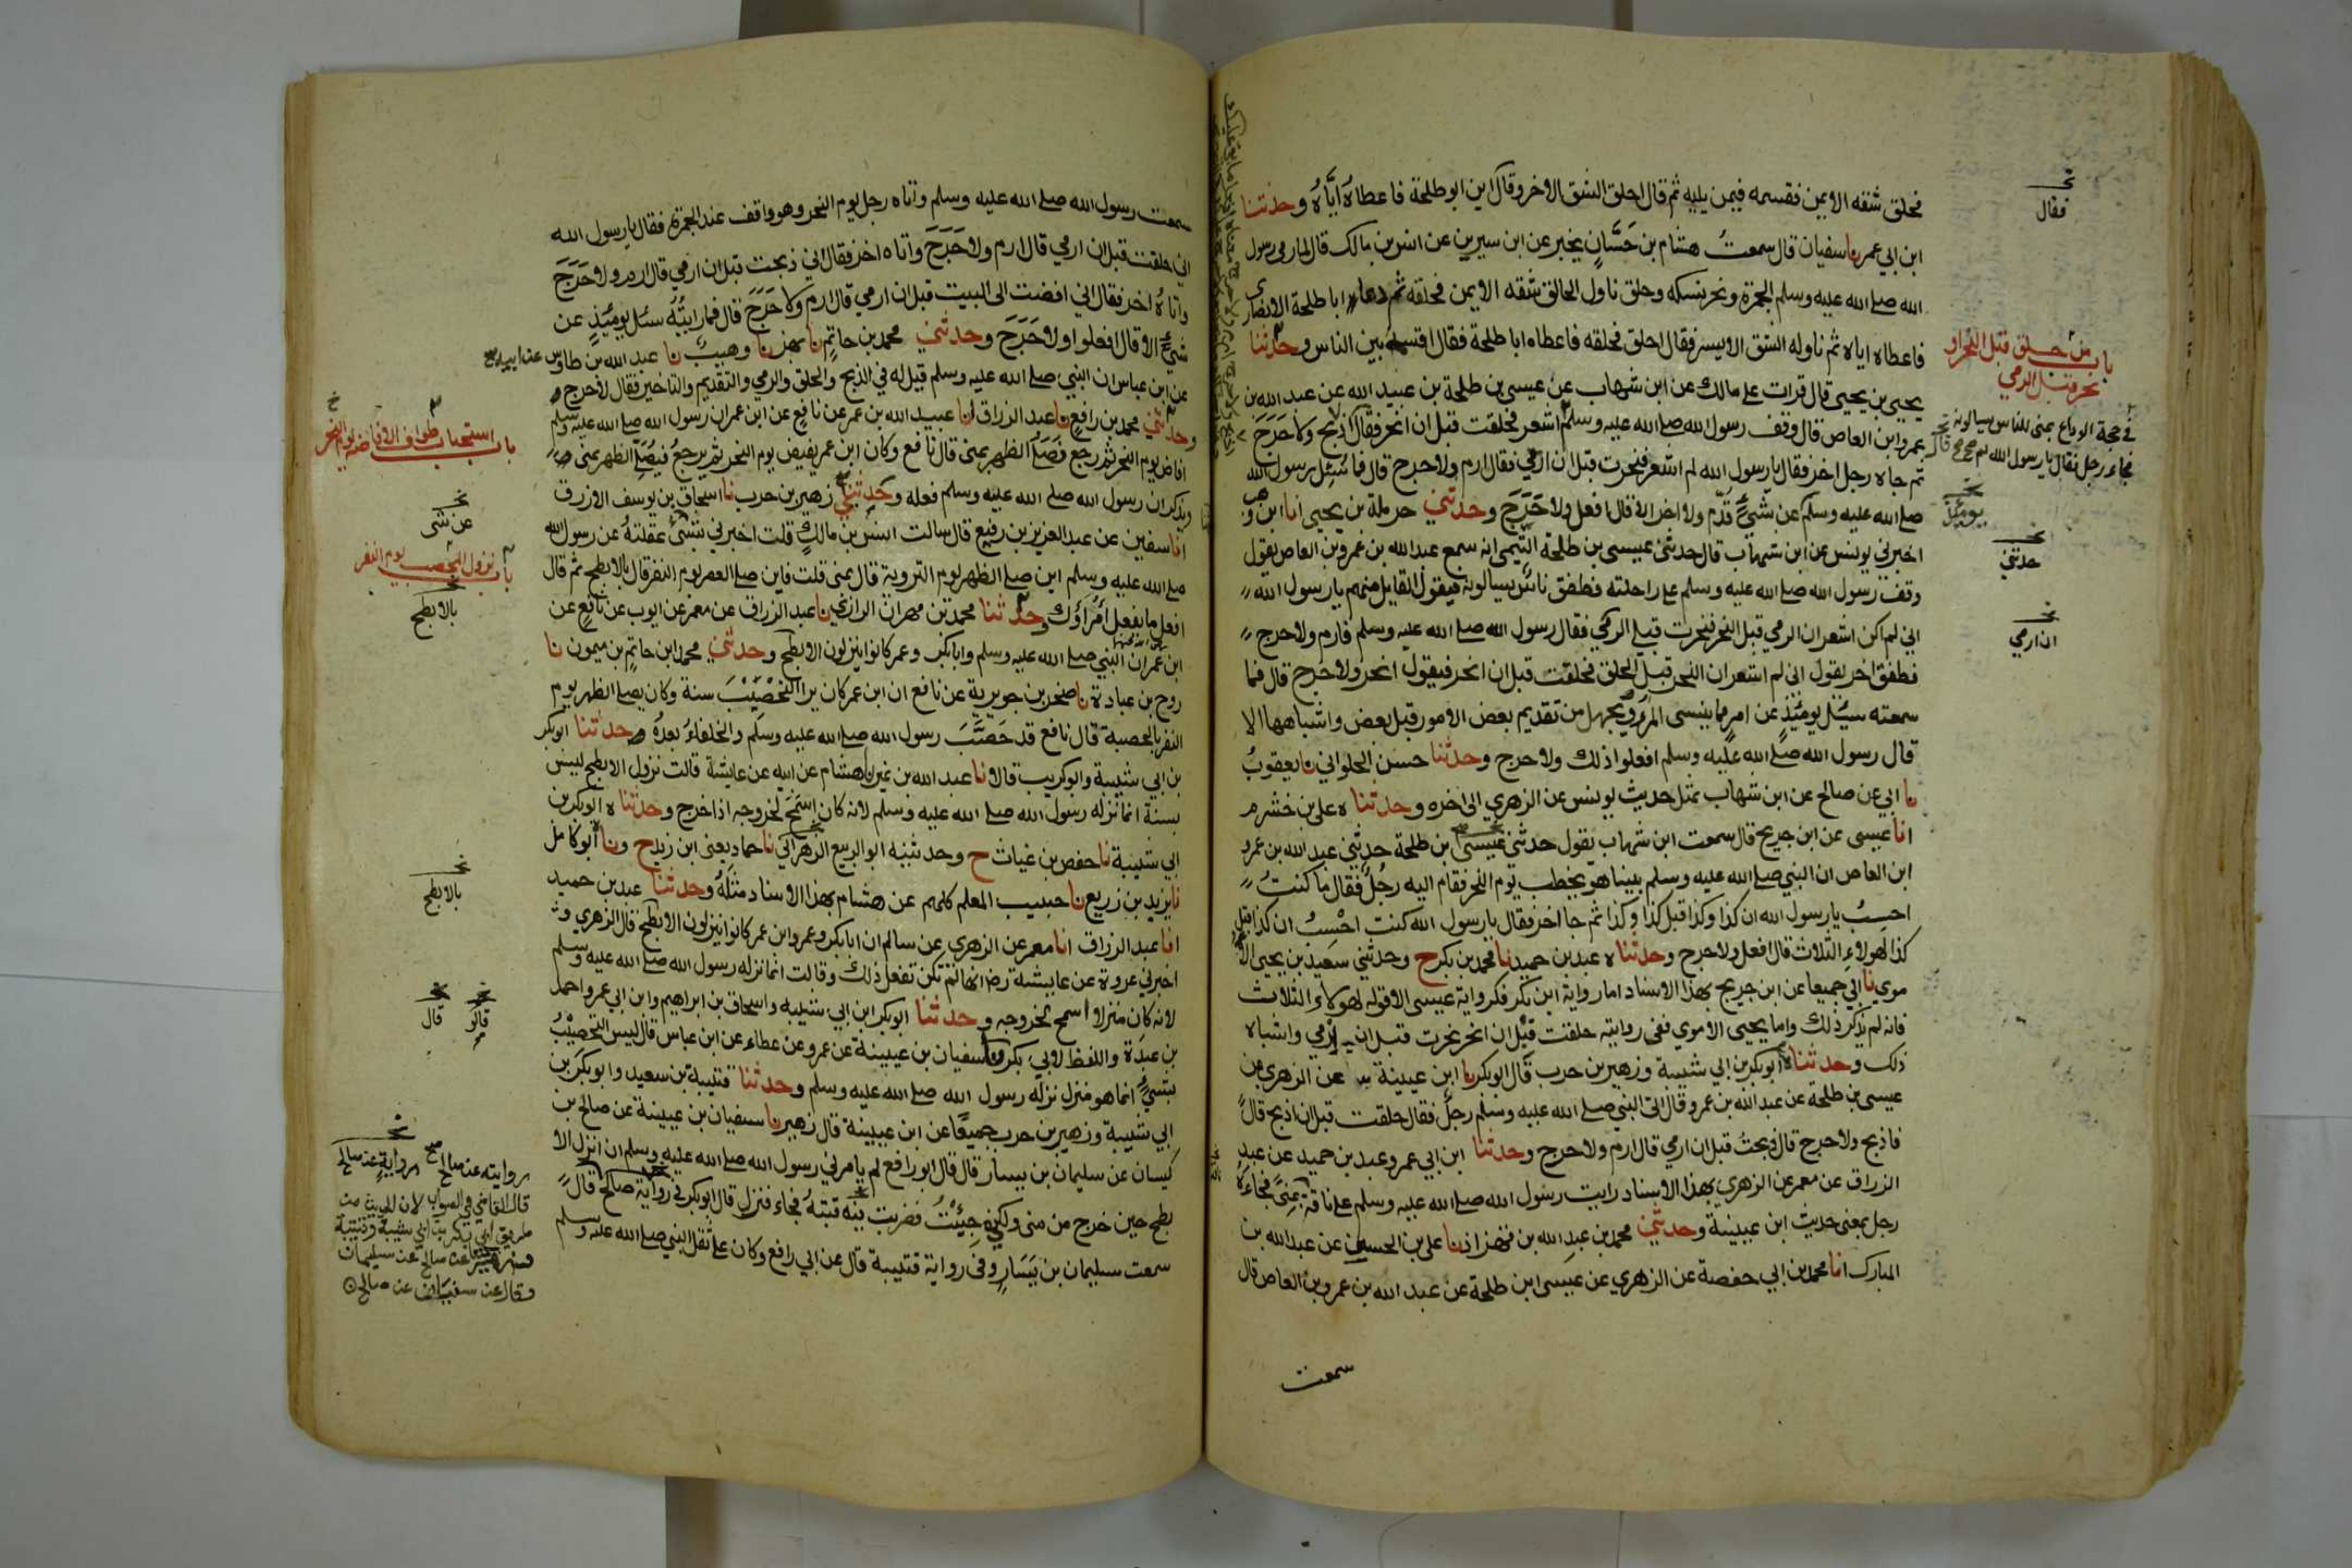 فحلق شقه الايمن فقسمه فيمن يليه ثم قال احلق الشق الاخر وقال اين ابو طلحة فاعطاه اياه وحدثنا
ابن ابي عمر نا سفيان قال سمعت هشام بن حسان يخبر عن ابن سيرين عن انس بن مالك قال لما رمى رسول
الله صلے الله عليه وسلم الجمرة ونحر نسكه وحلق ناول الحالق شقه الايمن فحلقه ثم دعا ابا طلحة الانصاري
فاعطاه اياه ثم ناوله الشق الايسر فقال احلق فحلقه فاعطاه ابا طلحة فقال اقسمه بين الناس وحدثنا
يحيى بن يحيى قال قرات على مالك عن ابن شهاب عن عيسى بن طلحة بن عبيد الله عن عبد الله بن
عمرو ابن العاص قال وقف رسول الله صلے الله عليه وسلم اشعر فحلقت قبل ان انحر فقال اذبح ولا حرج
ثم جاه رجل اخر فقال يا رسول الله لم اشعر فنحرت قبل ان ارمي فقال ارم ولا حرج قال فما سئل رسول الله
صلے الله عليه وسلم عن شيء قدم ولا اخر الا قال افعل ولا حرج وحدثني حرملة بن يحيى انا ابن وهب
اخبرني يونس عن ابن شهاب قال حدثني عيسى بن طلحة التيمي انه سمع عبد الله بن عمرو بن العاص يقول
وقف رسول الله صلے الله عليه وسلم على راحلته فطفق ناس يسالونه فيقول القايل منهم يا رسول الله
اني لم اكن اشعر ان الرمي قبل النحر فنحرت قبل الرمي فقال رسول الله صلے الله عليه وسلم فارم ولا حرج
فطفق اخر يقول اني لم اشعر ان النحر قبل الحلق فحلقت قبل ان انحر فيقول انحر ولا حرج قال فما
سمعته سئل يومئذ عن امر مما ينسى المرء ويجهل من تقديم بعض الامور قبل بعض واشباهها الا
قال رسول الله صلے الله عليه وسلم افعلوا ذلك ولا حرج وحدثنا حسن الحلواني نا يعقوب
نا ابي عن صالح عن ابن شهاب بمثل حديث يونس عن الزهري الى اخره وحدثنا ه علي بن خشرم
انا عيسى عن ابن جريج قال سمعت ابن شهاب يقول حدثني عيسى ابن طلحة حدثني عبد الله بن عمرو
ابن العاص ان النبي صلے الله عليه وسلم بينا هو يخطب يوم النحر فقام اليه رجل فقال ما كنت
احسب يا رسول الله ان كذا وكذا قبل كذا وكذا ثم جا اخر فقال يا رسول الله كنت احسب ان كذا قبل
كذا لهولاء الثلاث قال افعل ولا حرج وحدثنا ه عبد بن حميد نا محمد بن بكر ح وحدثني سعيد بن يحيى الا
موي نا ابي جميعا عن ابن جريج بهذا الاسناد اما رواية ابن بكر فكرواية عيسى الا قوله لهولاء الثلاث
فانه لم يذكر ذلك واما يحيى الاموي ففي روايته حلقت قبل ان انحر نحرت قبل ان ارمي واشباه
ذلك وحدثناه ابو بكر بن ابي شيبة وزهير بن حرب قال ابو بكر نا ابن عيينة عن الزهري عن
عيسى بن طلحة عن عبد الله بن عمرو قال اتى النبي صلے الله عليه وسلم رجل فقال حلقت قبل ان اذبح قال
فاذبح ولا حرج قال ذبحت قبل ان ارمي قال ارم ولا حرج وحدثنا ابن ابي عمر وعبد بن حميد عن عبد
الرزاق عن معمر عن الزهري بهذا الاسناد رايت رسول الله صلے الله عليه وسلم على ناقة بمنى فجاءه
رجل بمعنى حديث ابن عيينة وحدثني محمد بن عبد الله بن قهزاذ نا علي بن الحسين عن عبد الله بن
المبارك انا محمد بن ابي حفصة عن الزهري عن عيسى ابن طلحة عن عبد الله بن عمرو بن العاص قال
سمعت
فقال
باب من حلق قبل النحر او
نحر قبل الرمي
في حجة الوداع بمنى للناس يسالونه
فجاء رجل فقال يا رسول الله لم
يومئذ
حدثني
ان ارمي
سمعت رسول الله صلے الله عليه وسلم واتاه رجل يوم النحر وهو واقف عند الجمرة فقال يا رسول الله
اني حلقت قبل ان ارمي قال ارم ولا حرج واتاه اخر فقال اني ذبحت قبل ان ارمي قال ارم ولا حرج
واتاه اخر فقال اني افضت الى البيت قبل ان ارمي قال ارم ولا حرج قال فما رايته سئل يومئذ عن
شيء الا قال افعلوا ولا حرج وحدثني محمد بن حاتم نا بهز نا وهيب نا عبد الله بن طاوس عن ابيه
عن ابن عباس ان النبي صلے الله عليه وسلم قيل له في الذبح والحلق والرمي والتقديم والتاخير فقال لا حرج
وحدثني محمد بن رافع نا عبد الرزاق انا عبيد الله بن عمر عن نافع عن ابن عمر ان رسول الله صلے الله عليه وسلم
افاض يوم النحر ثم رجع فصلى الظهر بمنى قال نافع وكان ابن عمر يفيض يوم النحر ثم يرجع فيصلي الظهر بمنى
ويذكر ان رسول الله صلے الله عليه وسلم فعله وحدثني زهير بن حرب نا اسحاق بن يوسف الازرق
انا سفين عن عبد العزيز بن رفيع قال سالت انس بن مالك قلت اخبرني بشئ عقلته عن رسول الله
صلے الله عليه وسلم اين صلے الظهر يوم التروية قال بمنى قلت فاين صلے العصر يوم النفر قال بالابطح ثم قال
افعل ما يفعل امراؤك وحدثنا محمد بن مهران الرازي نا عبد الرزاق عن معمر عن ايوب عن نافع عن
ابن عمر ان النبي صلے الله عليه وسلم وابا بكر وعمر كانوا ينزلون الابطح وحدثني محمد ابن حاتم بن ميمون نا
روح بن عبادة نا صخر بن جويرية عن نافع ان ابن عمر كان يرا التحصيب سنة وكان يصلے الظهر يوم
النفر بالحصبة قال نافع قد حصب رسول الله صلے الله عليه وسلم والخلفاء بعده وحدثنا ابو بكر
بن ابي شيبة وابو كريب قالا نا عبد الله بن نمير نا هشام عن ابيه عن عايشة قالت نزول الابطح ليس
بسنة انما نزله رسول الله صلے الله عليه وسلم لانه كان اسمح لخروجه اذا خرج وحدثنا ه ابو بكر بن
ابي شيبة نا حفص بن غياث ح وحدثنيه ابو الربيع الزهراني نا حماد يعني ابن زيد ح ونا ابو كامل
نا يزيد بن زريع نا حبيب المعلم كلهم عن هشام بهذا الاسناد مثله وحدثنا عبد بن حميد
انا عبد الرزاق انا معمر عن الزهري عن سالم ان ابا بكر وعمر وابن عمر كانوا ينزلون الابطح قال الزهري و
اخبرني عروة عن عايشة رض انها لم تكن تفعل ذلك وقالت انما نزله رسول الله صلے الله عليه وسلم
لانه كان منزلا اسمح لخروجه وحدثنا ابو بكر ابن ابي شيبه واسحاق بن ابراهيم وابن ابي عمر واحمد
بن عبدة واللفظ لابي بكر نا سفيان بن عيينة عن عمرو عن عطاء عن ابن عباس قال ليس التحصيب
بشيء انما هو منزل نزله رسول الله صلے الله عليه وسلم وحدثنا قتيبة بن سعيد وابو بكر بن
ابي شيبة وزهير بن حرب جميعا عن ابن عيينة قال زهير نا سفيان بن عيينة عن صالح بن
كيسان عن سليمان بن يسار قال قال ابو رافع لم يامرني رسول الله صلے الله عليه وسلم ان انزل الا
بطح حين خرج من منى ولكني جيئت فضربت فيه قبته فجاء فنزل قال ابو بكر في رواية صالح قال
سمعت سليمان بن يسار وفي رواية قتيبة قال عن ابي رافع وكان على ثقل النبي صلے الله عليه وسلم
باب استحباب طواف الافاضة يوم النحر
عن شى
باب نزول المحصب يوم النفر
بالابطح
بالابطح
قالو
قال
روايته عن صالح
رواية عن صالح